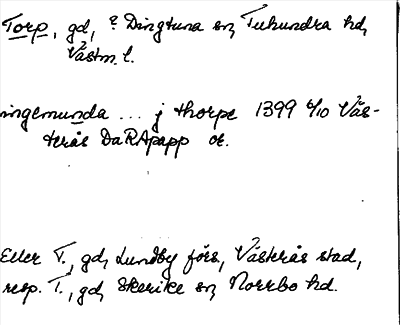 Torp, gd, ? Dingtuna sn, Tuhundra hd,
Västm. l.
ingemunda ... j thorpe 1399 6/10 Väs-
terås DaRApapp or.
Eller T., gd, Lundby förs, Västerås stad,
resp. T., gd, Skerike sn, Norrbo hd.